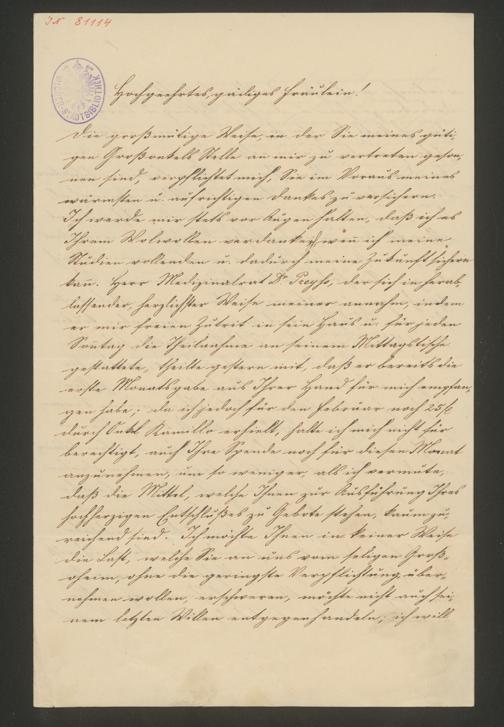 IN 81114
Hochgeehrtes, gütiges Fräulein!
Die großmütige Weise, in der Sie meines güti-
gen Großonkels Stelle an mir zu vertreten geson-
nen sind, verpflichtet mich, Sie im Voraus meines
wärmsten u. aufrichtigen Dankes zu versichern.
Ich werde mir stets vor Augen halten, daß ich es
Ihrem Wolwollen verdanke, wenn ich meine
Studien vollenden u. dadurch meine Zukunft sichern
kan. Herr Medizinalrat Dr. der sich in herab-
lassender, herzlichster Weise meiner annahm, indem
er mir freien Zutrit in sein Haus u. für jeden
Sontag die Theilnahme an seinem Mittagstische
gestattete, theilte gestern mit, daß er bereits die
erste Monatsgabe aus Ihrer Hand für mich empfan-
gen habe; da ich jedoch für den Februar noch 25 fl
durch Onkl Kamillo erhielt, halte ich mich nicht für
berechtigt, auch Ihre Spende noch für diesen Monat
anzunehmen, um so weniger, als ich vermute,
daß die Mittel, welche Ihnen zur Ausführung Ihres
hochherzigen Entschlußes zu Gebote stehen, kaum zu-
reichend sind. Ich möchte Ihnen in keiner Weise
die Last, welche Sie an uns vom seligen Groß-
oheim, ohne die geringste Verpflichtung über-
nehmen wollen, erschweren, möchte nicht auch sei-
nem letzten Willen entgegenhandeln; ich will